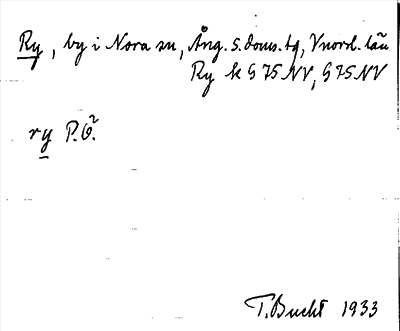 Ry, by i Nora sn, Ång. s. doms. tg, Vnorrl. län
Ry k G 75 NV, G 75 NV
ry P.O.²
T. Bucht 1933